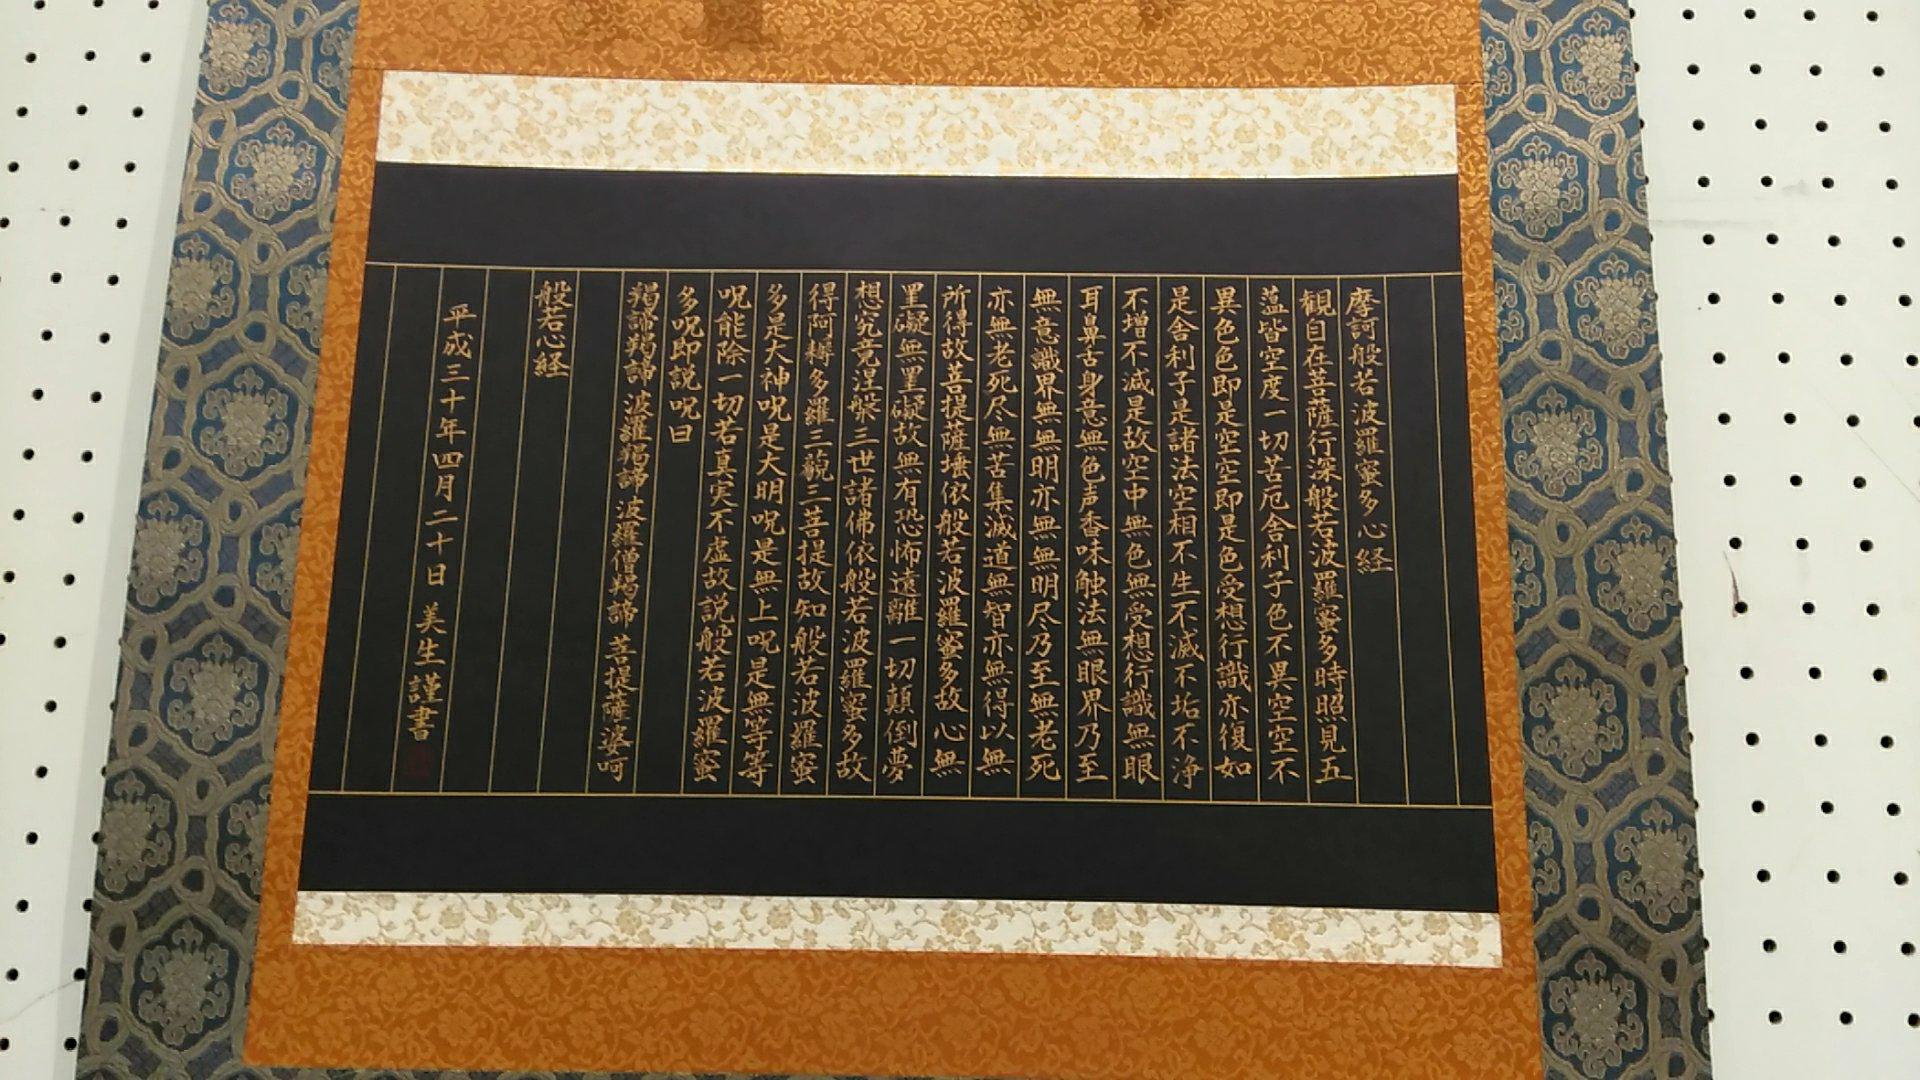 摩訶般若波羅蜜多心経
観自在菩薩行深般若波羅蜜多時照見五
蘊皆空度一切苦厄舎利子色不異空空不
異色色即是空空即是色受想行識亦復如
是舎利子是諸法空相不生不滅不垢不浄
不増不減是故空中無色無受想行識無眼
耳鼻舌身意無色声香味触法無眼界乃至
無意識界無無明亦無無明尽乃至無老死
亦無老死尽無苦集滅道無智亦無得以無
所得故菩提薩埵依般若波羅蜜多故心無
罣礙無罣礙故無有恐怖遠離一切顛倒夢
想究竟涅槃三世諸佛依般若波羅蜜多故
得阿耨多羅三藐三菩提故知般若波羅蜜
多是大神呪是大明呪是無上呪是無等等
呪能除一切苦真実不虚故説般若波羅蜜
多呪即説呪曰
羯諦羯諦 波羅羯諦 波羅僧羯諦 菩提薩婆呵
般若心経
平成三十年四月二十日 美生謹書